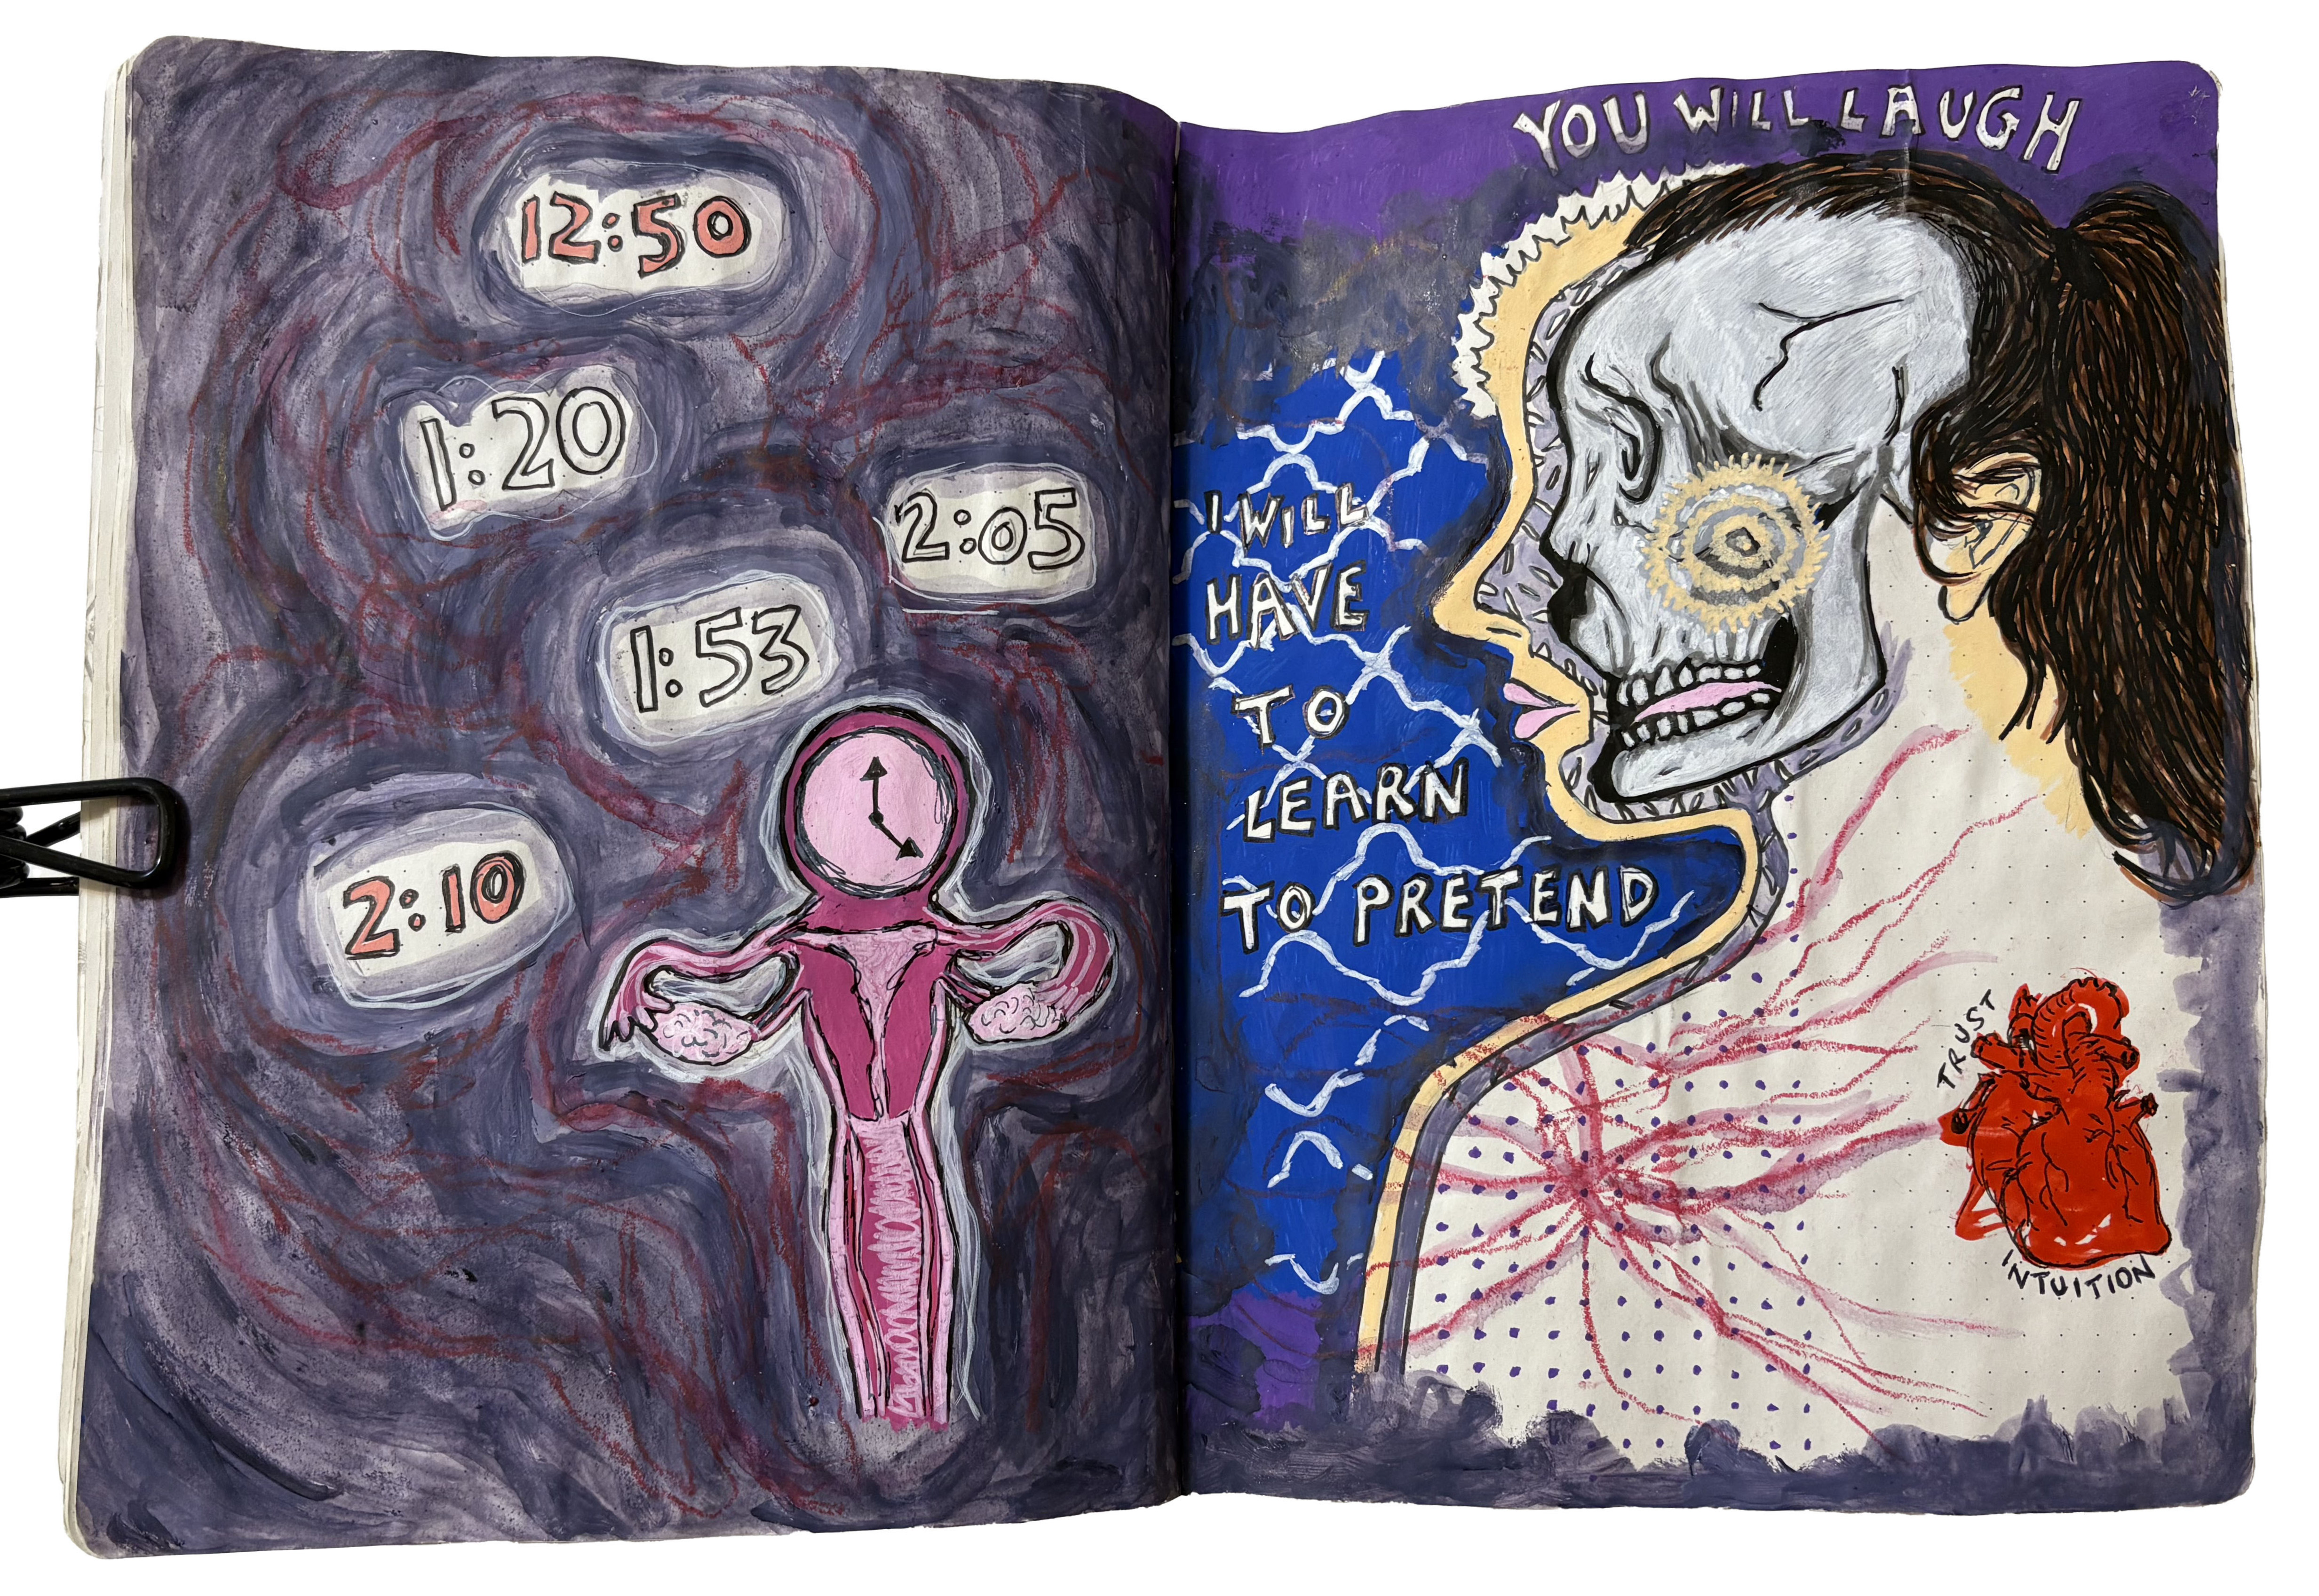 12:50
1:20
2:05
1:53
2:10
YOU WILL LAUGH
I WILL
HAVE
TO
LEARN
TO PRETEND
TRUST
INTUITION